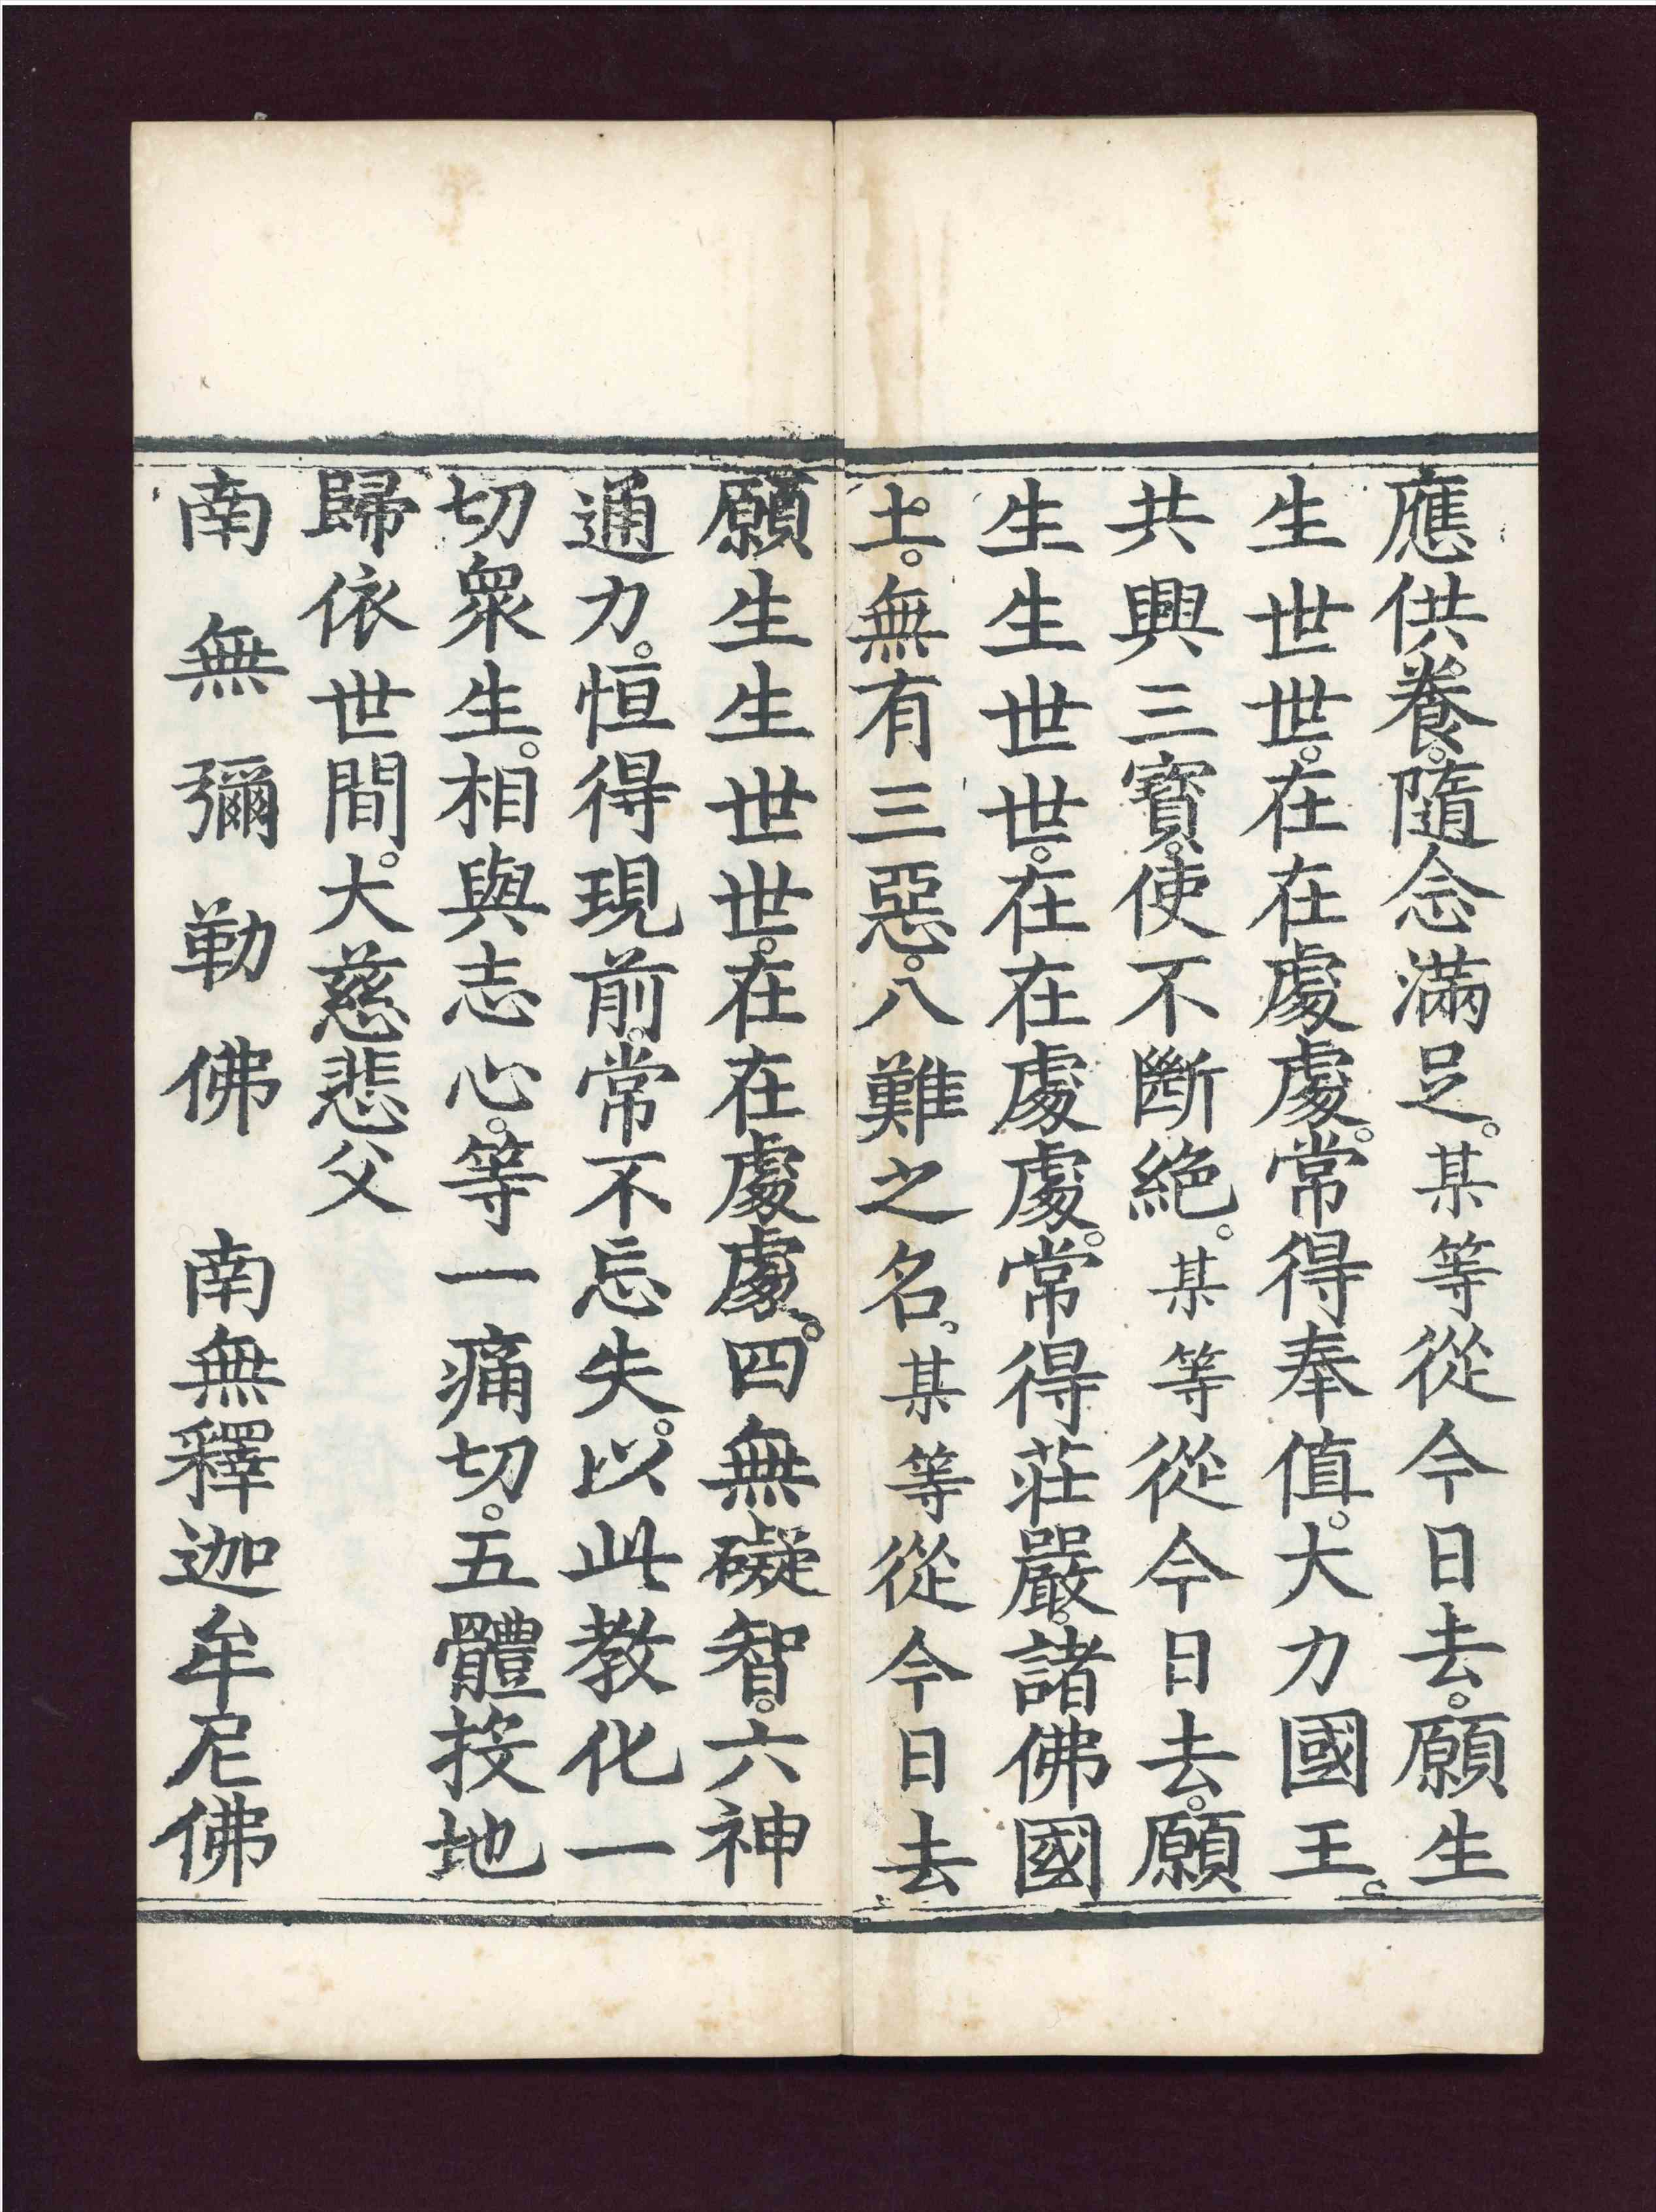 應供養。隨念滿足。某等從今日去。願生
生世世。在在處處。常得奉值。大力國王。
共興三寶。使不斷絕。某等從今日去。願
生生世世。在在處處。常得莊嚴。諸佛國
土。無有三惡。八難之名。某等從今日去
願生生世世。在在處處。四無礙智。六神
通力。恒得現前。常不忘失。以此教化一
切眾生。相與志心。等一痛切。五體投地
歸依世間。大慈悲父
南無彌勒佛　南無釋迦牟尼佛